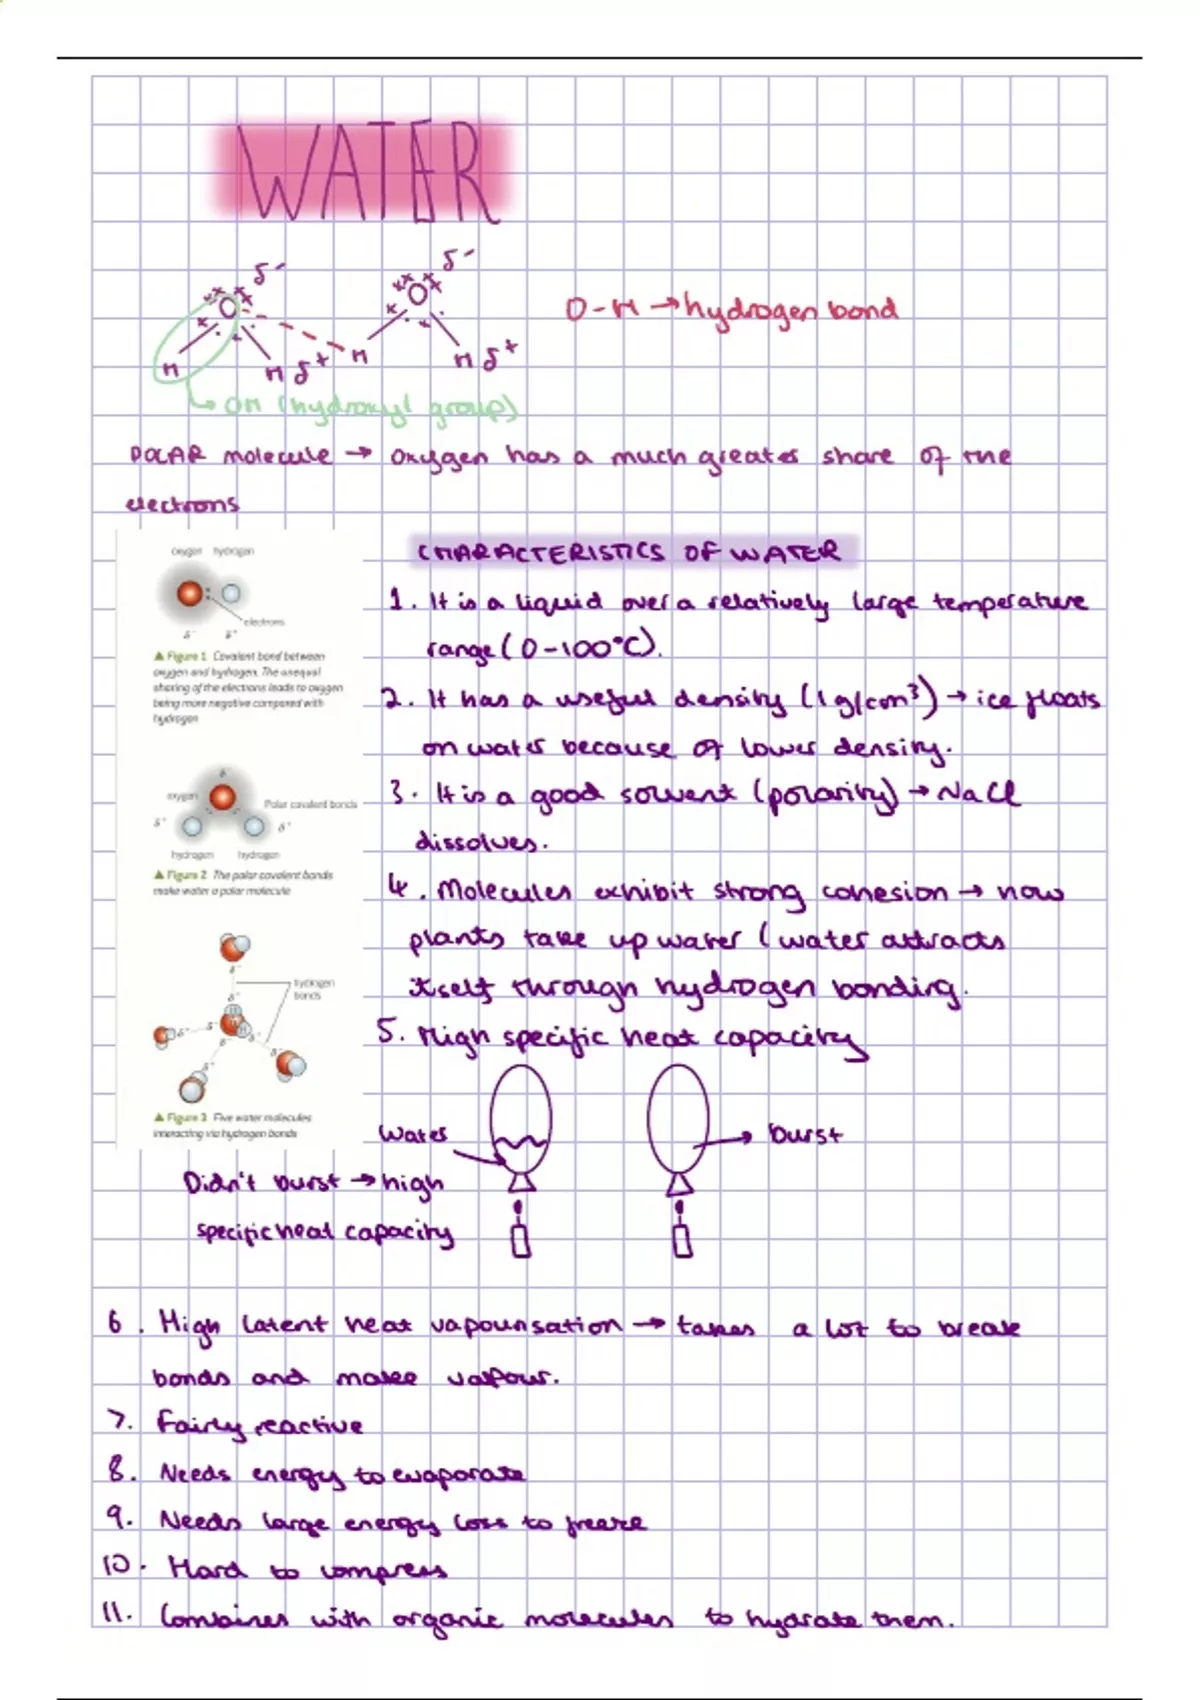 WATER
δ- δ-
O O
O-H → hydrogen bond
H H δ+ H H δ+
OH (hydroxyl group)
POLAR molecule → oxygen has a much greater share of the
electrons
oxygen hydrogen
electrons
δ- δ+
▲ Figure 1 Covalent bond between
oxygen and hydrogen. The unequal
sharing of the electrons leads to oxygen
being more negative compared with
hydrogen
δ-
oxygen
Polar covalent bonds
δ+ δ+
hydrogen hydrogen
▲ Figure 2 The polar covalent bonds
make water a polar molecule
δ-
hydrogen
bonds
δ+
δ+ δ- δ+ δ-
δ- δ+
▲ Figure 3 Five water molecules
interacting via hydrogen bonds
CHARACTERISTICS OF WATER
1. It is a liquid over a relatively large temperature
range (0-100°C).
2. It has a useful density (1 g/cm³) → ice floats
on water because of lower density.
3. It is a good solvent (polarity) → NaCl
dissolves.
4. Molecules exhibit strong cohesion → how
plants take up water (water attracts
itself through hydrogen bonding.
5. High specific heat capacity
Water
burst
Didn't burst → high
specific heat capacity
6. High latent heat vapourisation → takes a lot to break
bonds and make vapour.
7. Fairly reactive
8. Needs energy to evaporate
9. Needs large energy loss to freeze
10. Hard to compress
11. Combines with organic molecules to hydrate them.